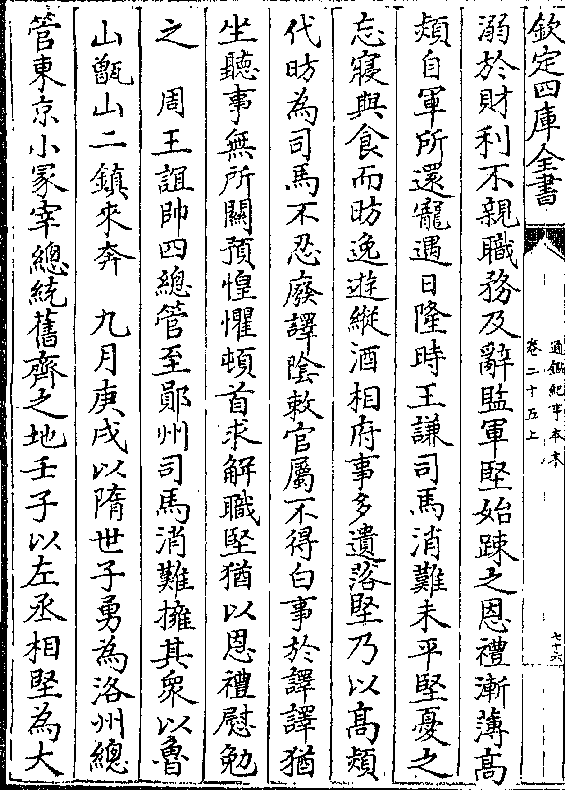 欽定四庫全書
通鑑紀事本末
卷二十五上
七十六
溺於財利不親職務及辭監軍堅始踈之恩禮漸薄高
熲自軍所還寵遇日隆時王謙司馬消難未平堅憂之
忘寢與食而昉逸遊縱酒相府事多遺落堅乃以高熲
代昉為司馬不忍廢譯陰敕官屬不得白事於譯譯猶
坐聽事無所關預惶懼頓首求解職堅猶以恩禮慰勉
之　周王誼帥四總管至鄖州司馬消難擁其衆以魯
山甑山二鎮來奔　九月庚戌以隋世子勇為洛州總
管東京小冢宰總統舊齊之地壬子以左丞相堅為大